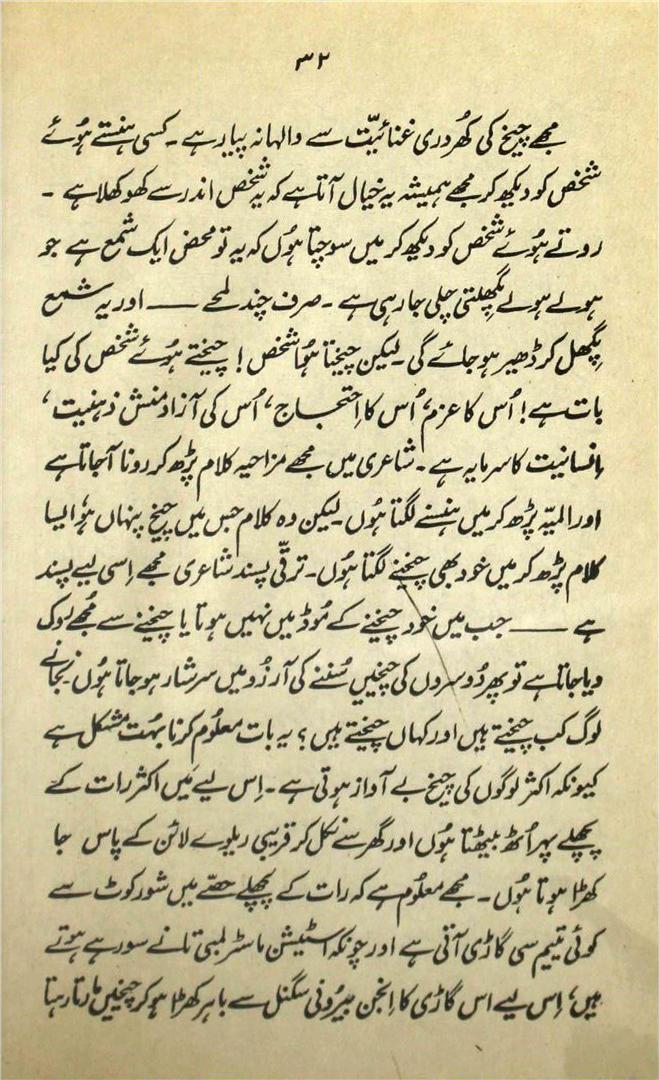 ۳۲
مجھے چیخ کی کھُردری غنائیّت سے والہانہ پیار ہے ۔ کسی ہنستے ہُوئے
شخص کو دیکھ کر مجھے ہمیشہ یہ خیال آتا ہے کہ یہ شخص اندر سے کھوکھلا ہے ۔
روتے ہُوئے شخص کو دیکھ کر میں سوچتا ہوُں کہ یہ تو محض ایک شمع ہے جو
ہولے ہولے پگھلتی چلی جا رہی ہے ۔ صرف چند لمحے —— اور یہ شمع
پگھل کر ڈھیر ہو جائے گی ۔ لیکن چیختا ہُوا شخص ! چیختے ہُوئے شخص کی کیا
بات ہے ! اُس کا عزم، اُس کا اِحتجاج، اُس کی آزاد منش ذہنیت ،
انسانیت کا سرمایہ ہے ۔ شاعری میں مجھے مزاحیہ کلام پڑھ کر رونا آ جاتا ہے
اور المیّہ پڑھ کر میں ہنسنے لگتا ہوُں ۔ لیکن وہ کلام جس میں چیخ پنہاں ہو، ایسا
کلام پڑھ کر میں خود بھی چیخنے لگتا ہوُں ۔ ترقّی پسند شاعری مجھے اِسی لیے پسند
ہے —— جب میں خود چیخنے کے مُوڈ میں نہیں ہوتا یا چیخنے سے مُجھے روک
دیا جاتا ہے تو پھر دُوسروں کی چیخیں سُننے کی آرزُو میں سرشار ہو جاتا ہوُں ۔ نجانے
لوگ کب چیختے ہیں اور کہاں چیختے ہیں ؟ یہ بات معلُوم کرنا بہُت مُشکل ہے
کیونکہ اکثر لوگوں کی چیخ بے آواز ہوتی ہے ۔ اِس لیے مَیں اکثر رات کے
پچھلے پہر اُٹھ بیٹھتا ہوُں اور گھر سے نکل کر قریبی ریلوے لائن کے پاس جا
کھڑا ہوتا ہُوں ۔ مجھے معلُوم ہے کہ رات کے پچھلے حصّے میں شورکوٹ سے
کوئی یتیم سی گاڑی آتی ہے اور چونکہ اسٹیشن ماسٹر لمبی تانے سو رہے ہوتے
ہیں، اِس لیے اس گاڑی کا اِنجن بیرُونی سگنل سے باہر کھڑا ہو کر چیخیں مارتا رہتا